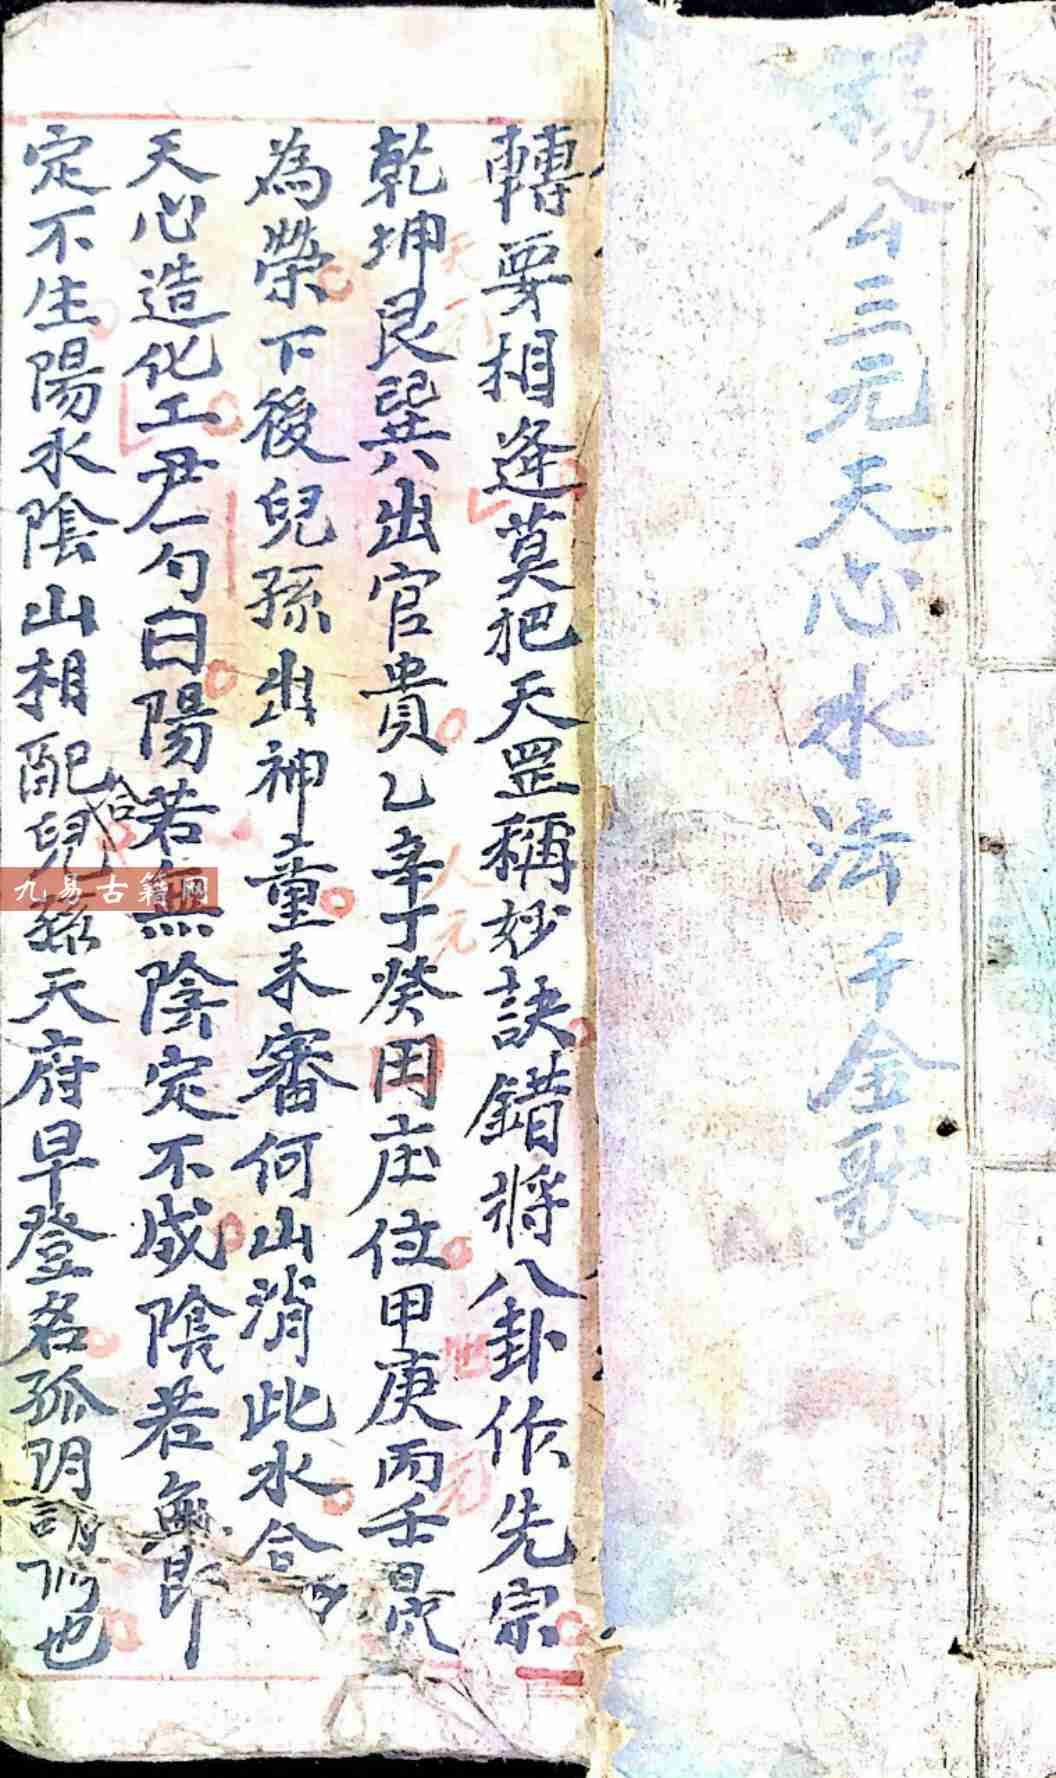 楊公三元天心水法千金歌
轉要相逢莫把天罡稱妙訣錯將八卦作先宗
乾坤艮巽出官貴乙辛丁癸田庄位甲庚丙壬最
為榮下後兒孫出神童未審何山消此水合
天心造化工尹一勺曰陽若無陰定不成陰若無即
定不生陽水陰山相配兒孫天府早登名孤阴也
合
天元
人元
地元
九易古籍网